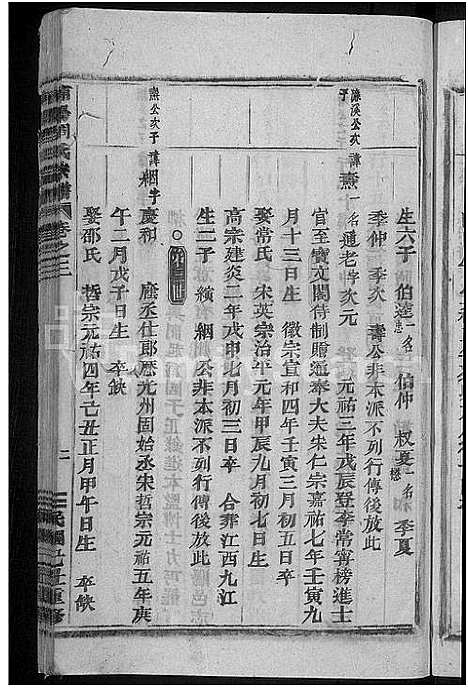 生六子 伯逵一名𢡟 伯仲 叔夏一名懋 季夏
季仲 季次 壽公非本派不列行傳後放此
濂溪公次子 諱燾一名通老字次元 元祐三年戊辰登李常寧榜進士
官至寶文閣待制贈通奉大夫宋仁宗嘉祐七年壬寅九
月十三日生 徽宗宣和四年壬寅三月初五日卒
娶常氏 宋英宗治平元年甲辰九月初七日生
高宗建炎二年戊申七月初三日卒 合葬江西九江
生二子 縯 絪 公非本派不列行傳後放此
燾公次子 諱絪字
慶和 廕丞仕郎歷光州固始丞宋哲宗元祐五年庚
午二月戊子日生 卒缺
娶邵氏 哲宗元祐四年己丑正月甲午日生 卒缺
周氏宗譜 卷之三
二
民國己丑重修